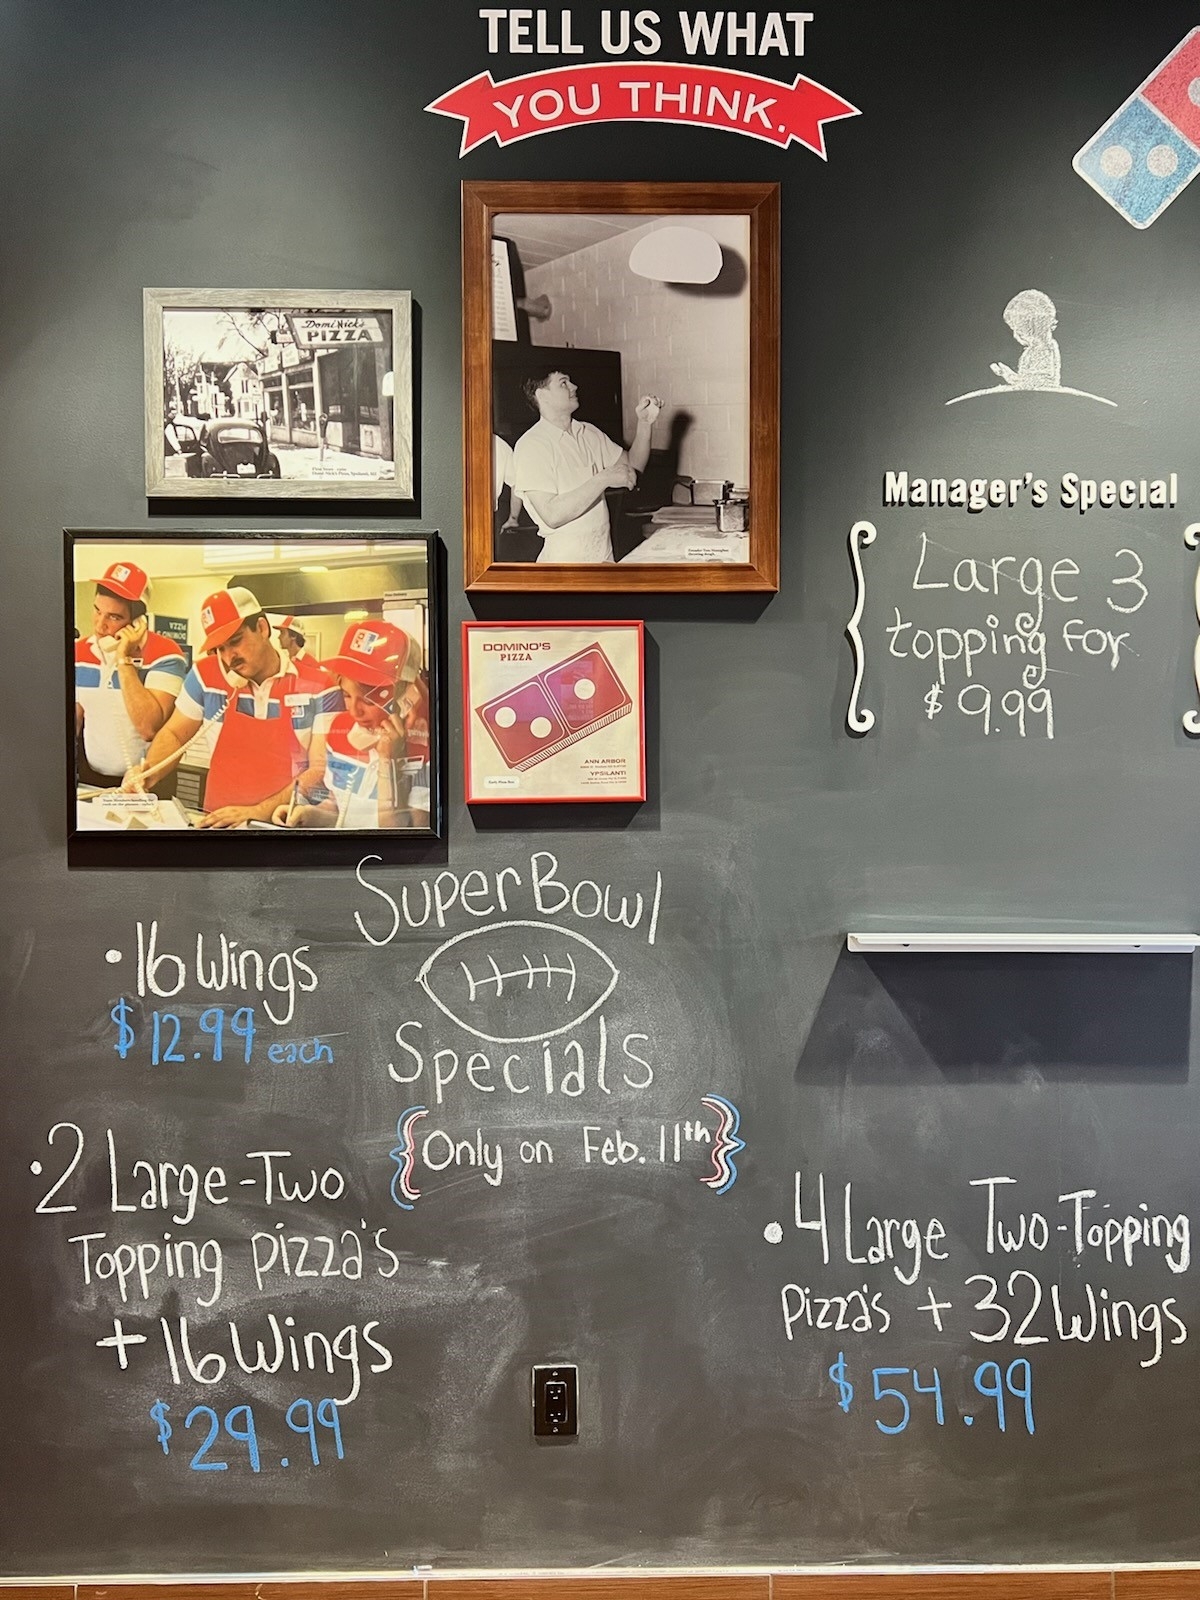 TELL US WHAT
YOU THINK.
Domi Nick's
PIZZA
DOMINO'S
PIZZA
ANN ARBOR
YPSILANTI
Manager's Special
Large 3
topping for
$9.99
Super Bowl
Specials
{Only on Feb. 11th}
•16 Wings
$12.99 each
•2 Large-Two
Topping pizza's
+ 16 Wings
$29.99
•4 Large Two-Topping
pizza's + 32 Wings
$54.99